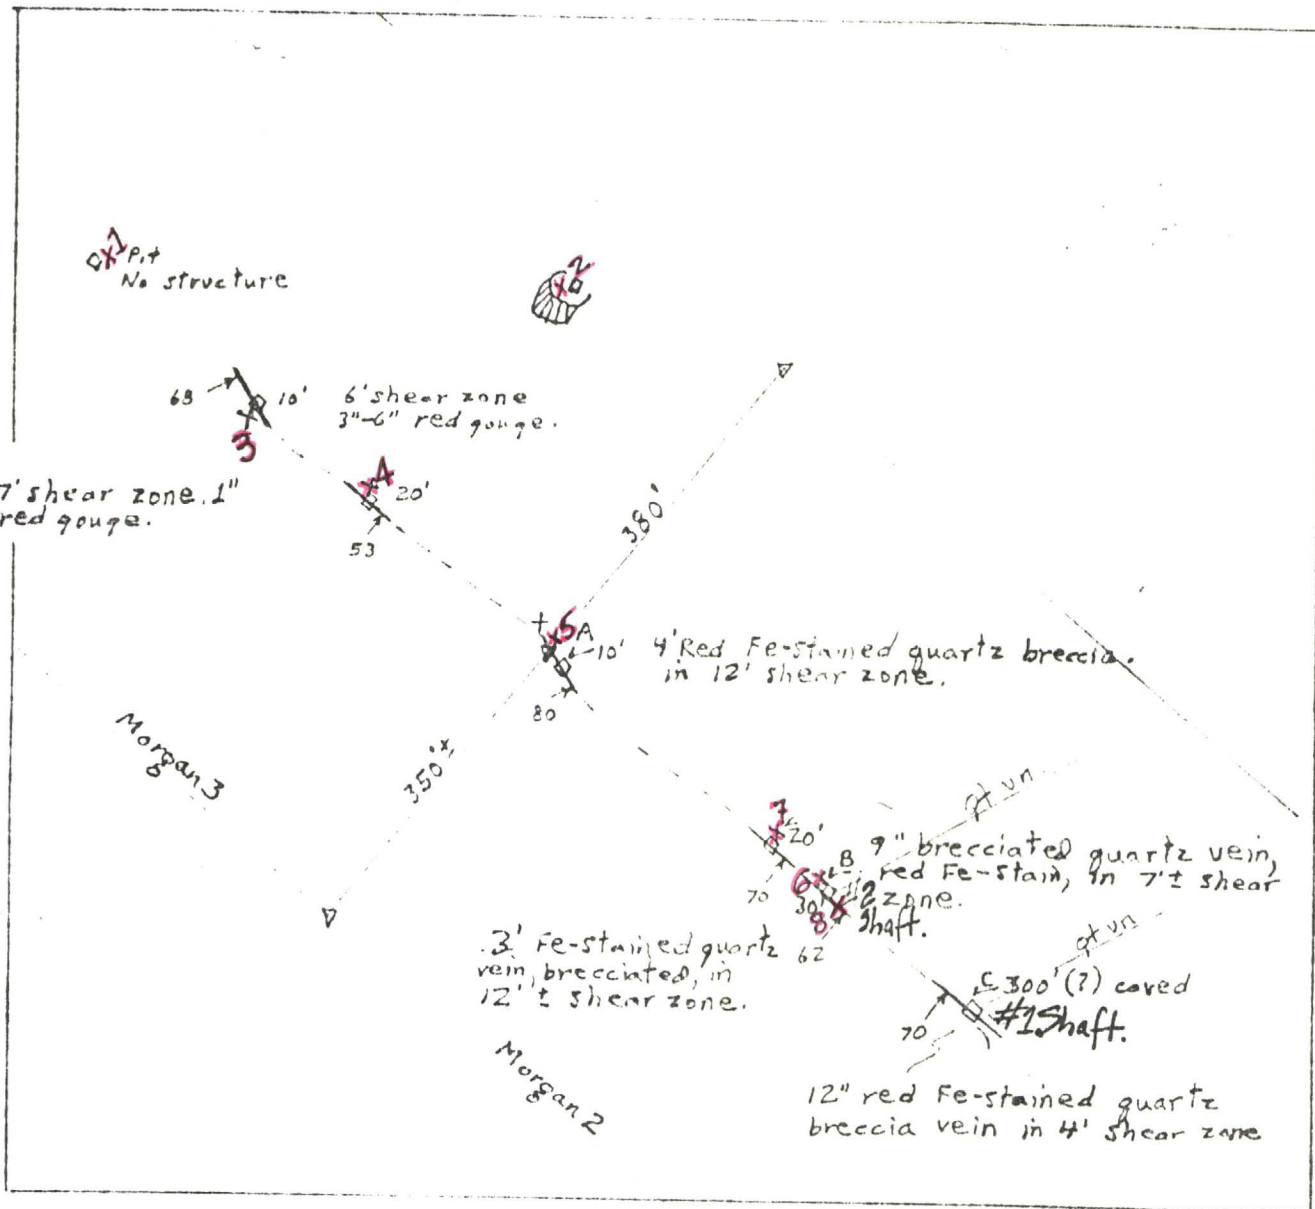 1
Pit
No structure
2
68
10'
6' shear zone
3"-6" red gouge.
3
7' shear zone. 1"
red gouge.
4
20'
53
380'
5
A
10'
4' Red Fe-stained quartz breccia.
in 12' shear zone.
80
Morgan 3
350'±
7
20'
qt vn
B
9" brecciated quartz vein,
red Fe-stain, in 7'± shear
zone.
6
70
30'
2
8
Shaft.
62
3' Fe-stained quartz
vein, brecciated, in
12'± shear zone.
qt vn
C 300'(?) caved
#1 Shaft.
70
Morgan 2
12" red Fe-stained quartz
breccia vein in 4' shear zone